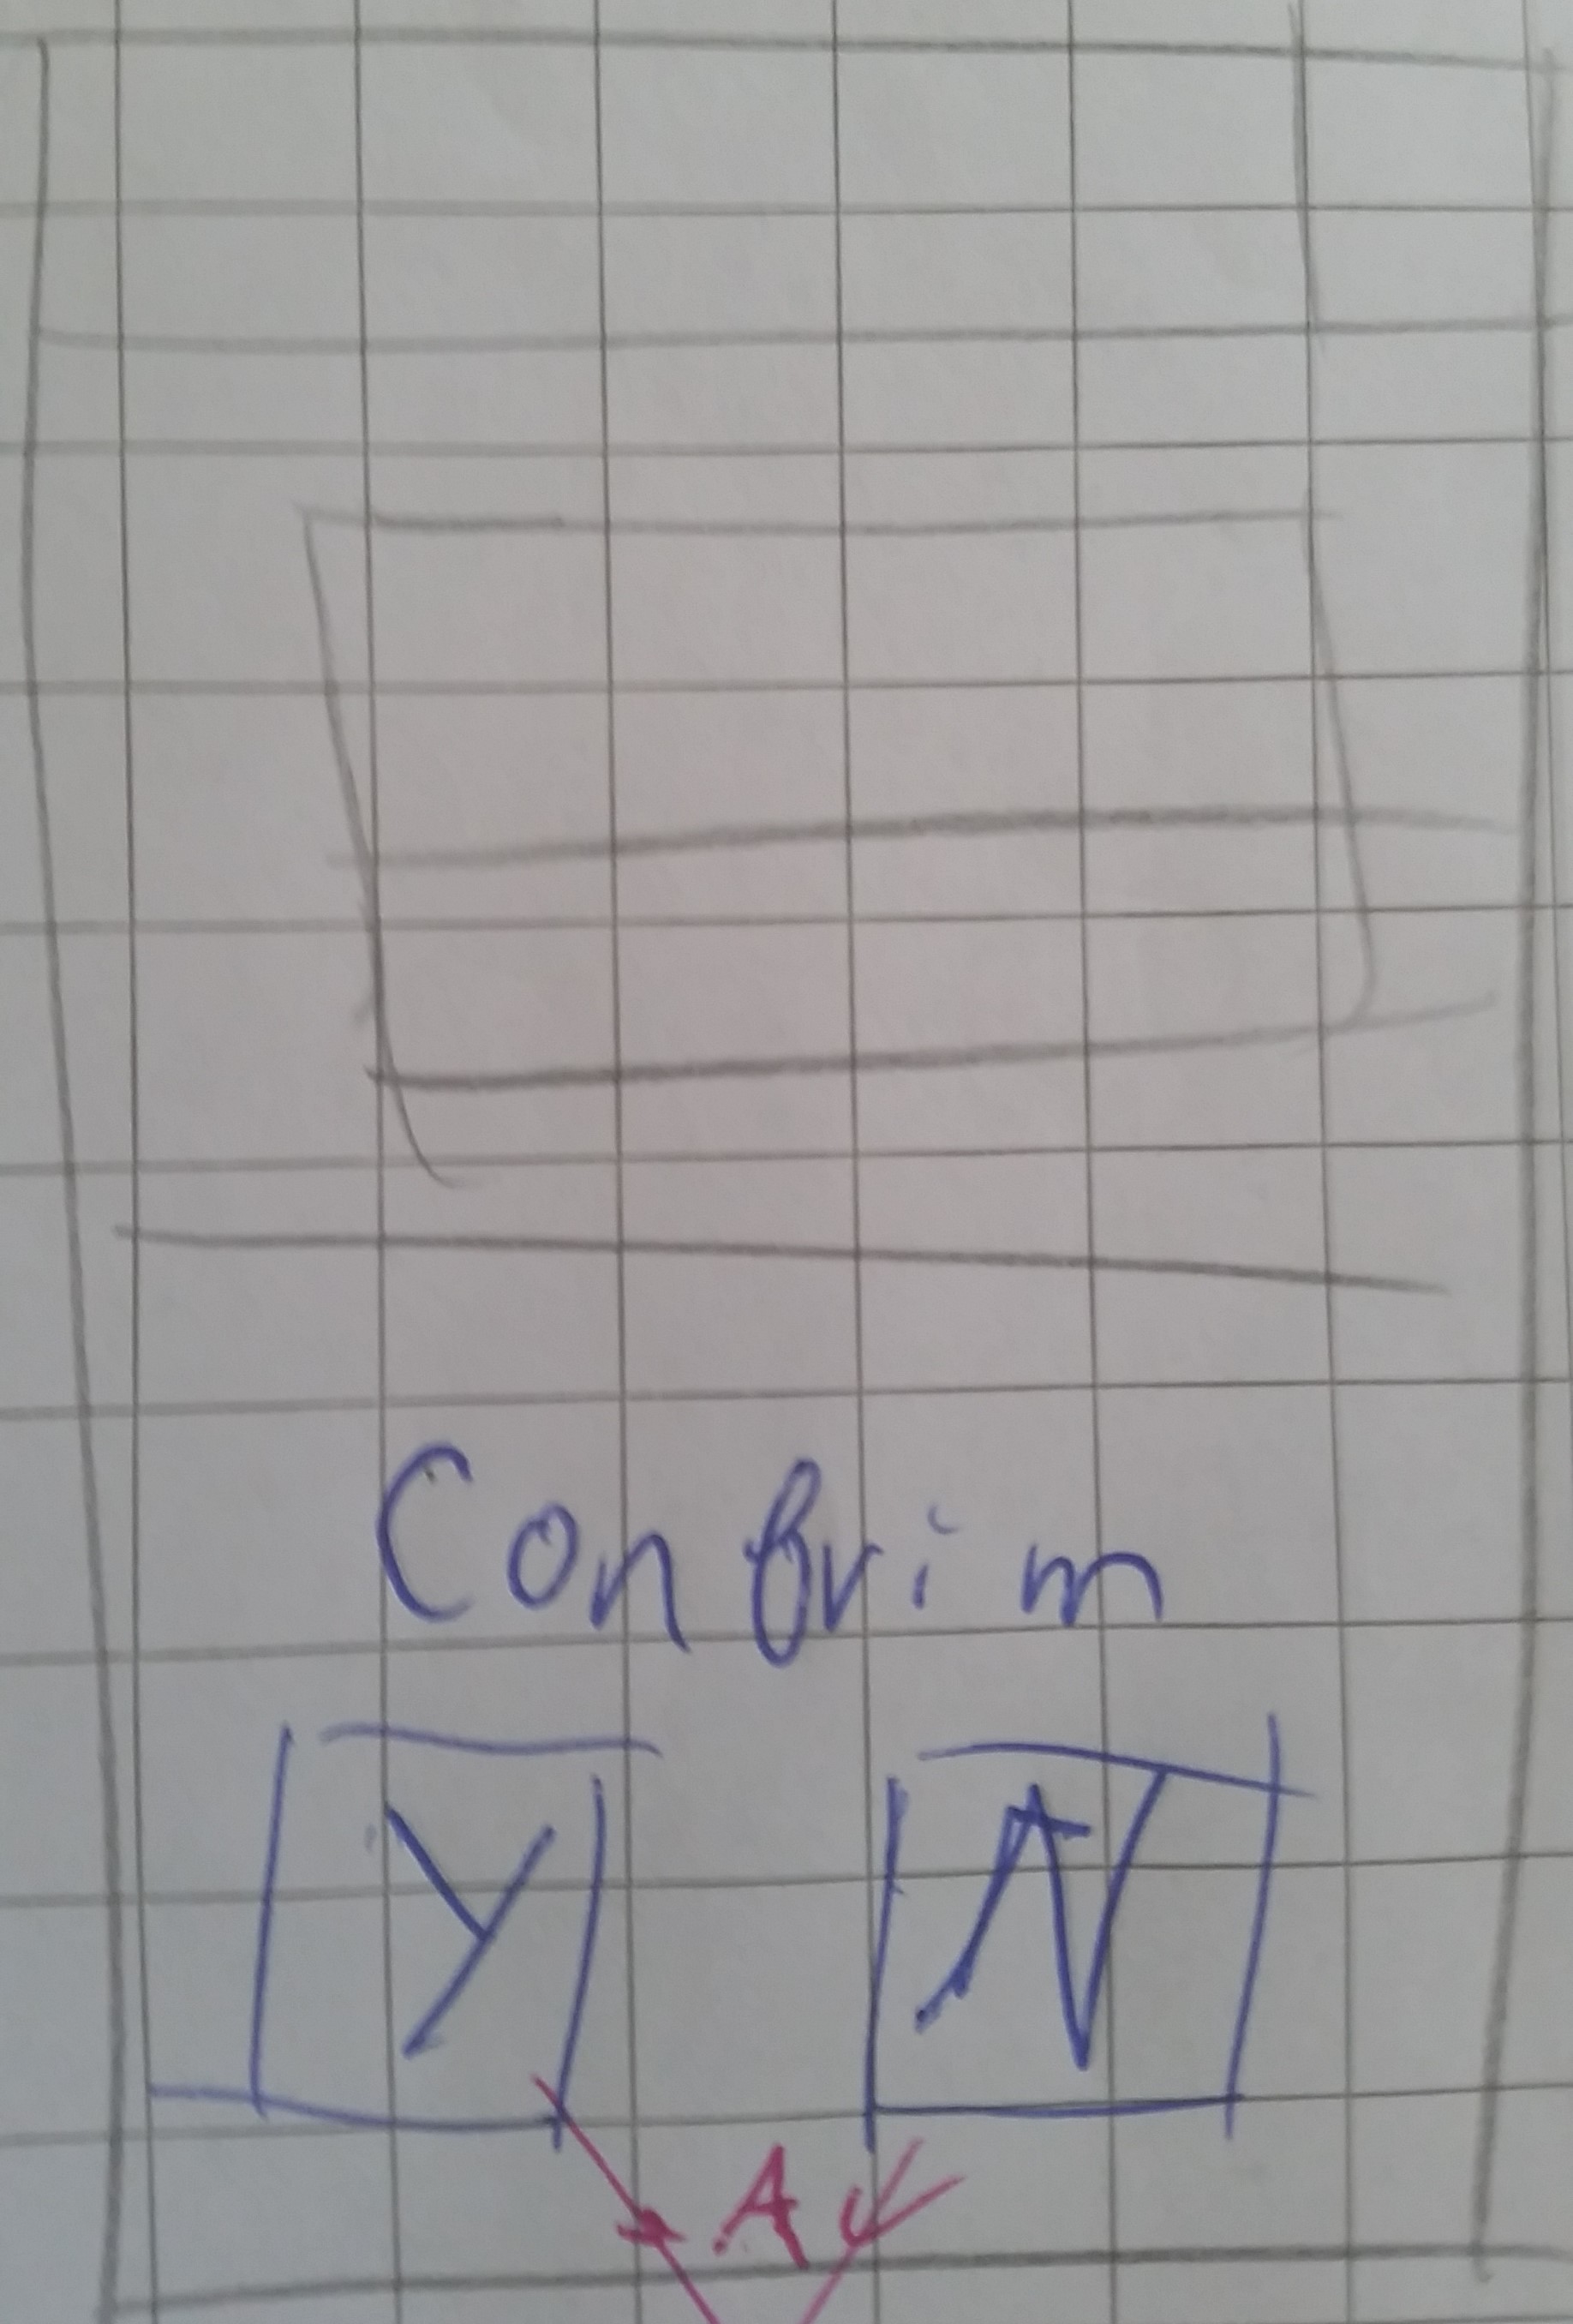 Confrim
Y N